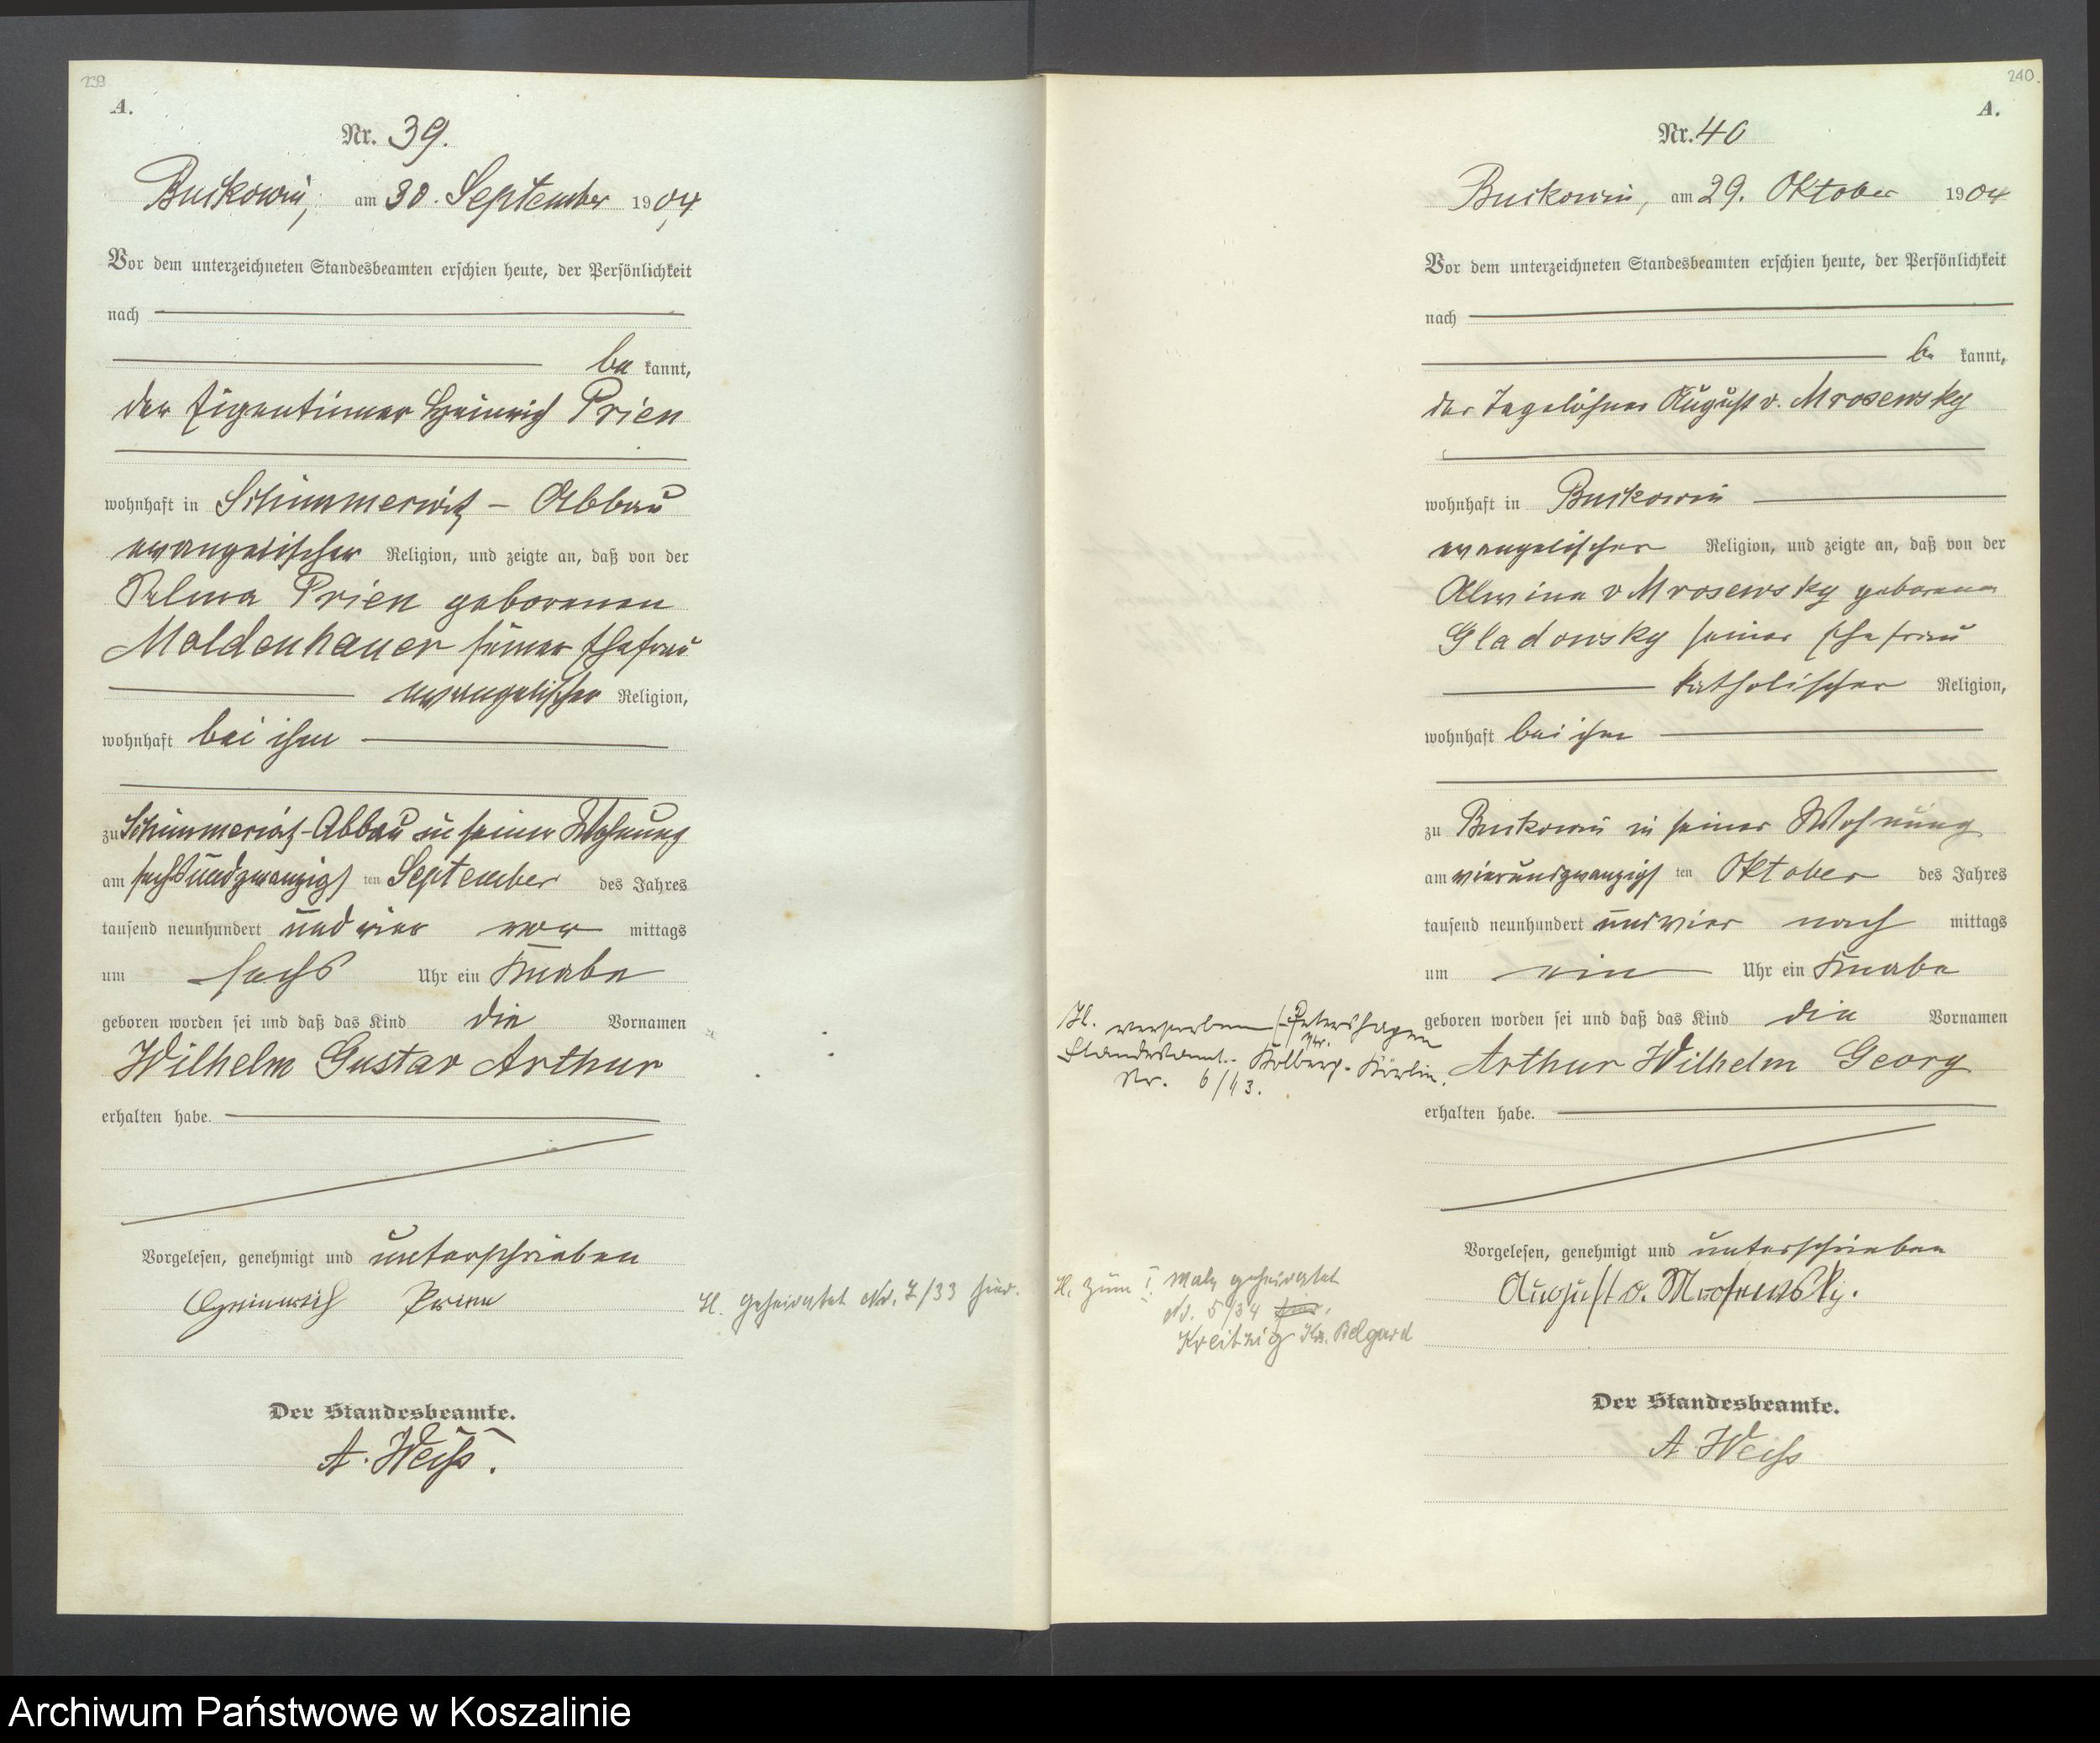 239
A.
Nr. 39.
Buckowin, am 30. September 1904
Vor dem unterzeichneten Standesbeamten erschien heute, der Persönlichkeit
nach
be kannt,
der Eigentümer Heinrich Prien
wohnhaft in Schimmerwitz - Abbau
evangelischer Religion, und zeigte an, daß von der
Prien geborenen
Moldenhauer seiner Ehefrau
evangelischer Religion,
wohnhaft bei ihm
zu Schimmerwitz-Abbau in seiner Wohnung
am sechsundzwanzigs ten September des Jahres
tausend neunhundert und vier vor mittags
um sechs Uhr ein Knabe
geboren worden sei und daß das Kind die Vornamen
Wilhelm Gustav Arthur
erhalten habe.
Vorgelesen, genehmigt und unterschrieben
Heinrich Prien
H. geheiratet Nr. 7/33 hier.
Der Standesbeamte.
A. Weiß.
240.
A.
Nr. 40
Buckowin, am 29. Oktober 1904
Vor dem unterzeichneten Standesbeamten erschien heute, der Persönlichkeit
nach
be kannt,
der Tagelöhner August v. Mrosewsky
wohnhaft in Buckowin
evangelischer Religion, und zeigte an, daß von der
Alwine v Mrosewsky geborenen
Gladowsky seiner Ehefrau
katholischer Religion,
wohnhaft bei ihm
zu Buckowin in seiner Wohnung
am vierundzwanzigs ten Oktober des Jahres
tausend neunhundert und vier nach mittags
um ein Uhr ein Knabe
geboren worden sei und daß das Kind die Vornamen
Arthur Wilhelm Georg
erhalten habe.
H. verstorben Petershagen
Standesamt Kr. Kolberg-Körlin.
Nr. 6/43.
Vorgelesen, genehmigt und unterschrieben
August v. Mrosewsky.
H. zum I. Male geheiratet
Nr. 5/34 hier.
Kreitzig Kr. Belgard
Der Standesbeamte.
A Weiß
Archiwum Państwowe w Koszalinie